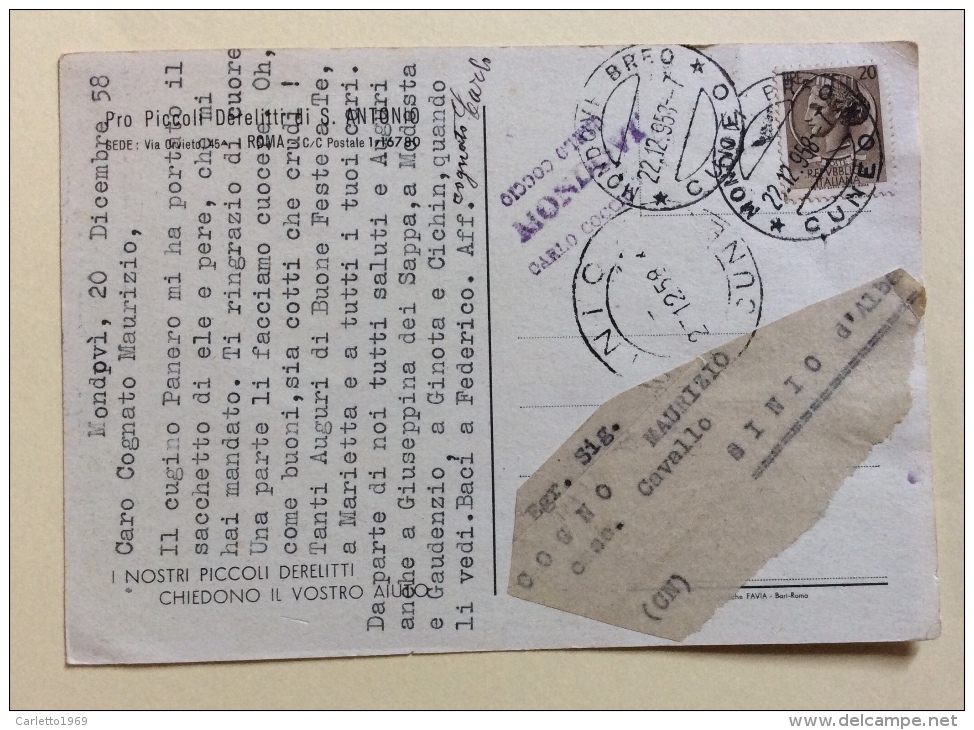 Pro Piccoli Derelitti di S. ANTONIO
SEDE: Via Orvieto 45 - ROMA - C/C Postale 1/16780
Mondpvì, 20 Dicembre 58
Caro Cognato Maurizio,
Il cugino Panero mi ha portato il
sacchetto di ele e pere, che mi
hai mandato. Ti ringrazio di cuore
Una parte li facciamo cuocere Oh,
come buoni,sia cotti che crudi !
Tanti Auguri di Buone Feste a Te,
a Marietta e a tutti i tuoi cari.
Da parte di noi tutti saluti e Auguri
anche a Giuseppina dei Sappa,a Modesta
e Gaudenzio, a Ginota e Cichin,quando
li vedi.Baci a Federico. Aff.
cognato Carlo
I NOSTRI PICCOLI DERELITTI
CHIEDONO IL VOSTRO AIUTO
CARLO COCCIO
MONDOVI
CARLO COCCIO
MONDOVI BREO
22.12.958
CUNEO
MONDOVI BREO
22.12.958
CUNEO
LIRE 20
POSTE
REPVBBLICA
ITALIANA
SINIO
12 58
CUNE
Egr. Sig.
COGNO MAURIZIO
Cavallo
SINIO d'Alba
(CN)
che FAVIA - Bari-Roma
Carletto1969
delcampe.net